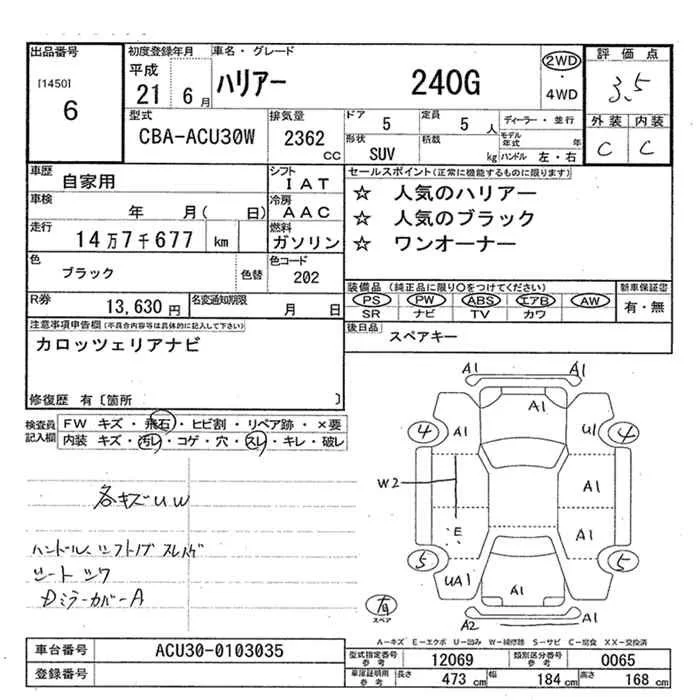 出品番号 初度登録年月 車名・グレード 評価点
[1450] 6
平成 21 6月
ハリアー 240G
2WD ・ 4WD
3.5
外装 内装
C C
型式 排気量 ドア 定員 ディーラー・並行
CBA-ACU30W 2362 CC 5 5人
形状 積載 モデル年式 年
SUV kg ハンドル 左・右
車歴 自家用 シフト IAT
セールスポイント(正常に機能するものに限ります)
☆ 人気のハリアー
☆ 人気のブラック
☆ ワンオーナー
車検 年 月( 日) 冷房 AAC
走行 14万7千677 km 燃料 ガソリン
色 ブラック 色替 色コード 202
装備品 (純正品に限り○をつけてください) 新車保証書
PS PW ABS エアB AW 有・無
SR ナビ TV カワ
R券 13,630円 名変通知期限 月 日
後日品 スペアキー
注意事項申告欄(不具合内容等は具体的に記入して下さい)
カロッツェリアナビ
修復歴 有〔箇所 〕
検査員記入欄
FW キズ・飛石・ヒビ割・リペア跡・×要
内装 キズ・汚レ・コゲ・穴・スレ・キレ・破レ
各キズUW
シート シワ
DミラーカバーA
A1
A1
4 A1 U1 4
W2 A1
E A1
5 UA1 A1 5
有 スペア
A2 A1
A-キズ E-エクボ U-凹み W-補修跡 S-サビ C-腐食 XX-交換済
車台番号 ACU30-0103035
登録番号
型式指定番号 参考 12069 類別区分番号 参考 0065
車庫証明用 参考 長さ 473 cm 幅 184 cm 高さ 168 cm